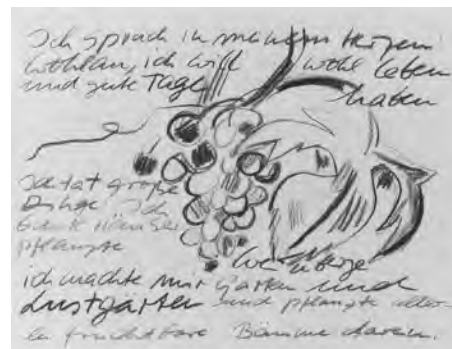 Ich sprach in meinem Herzen
wohlan, ich will wohl leben
und gute Tage haben
Ich tat große
Dinge Ich
baute Häuser
pflanzte
Weinberge
ich machte mir Gärten und
Lustgärten und pflanzte aller-
lei fruchtbare Bäume darein.